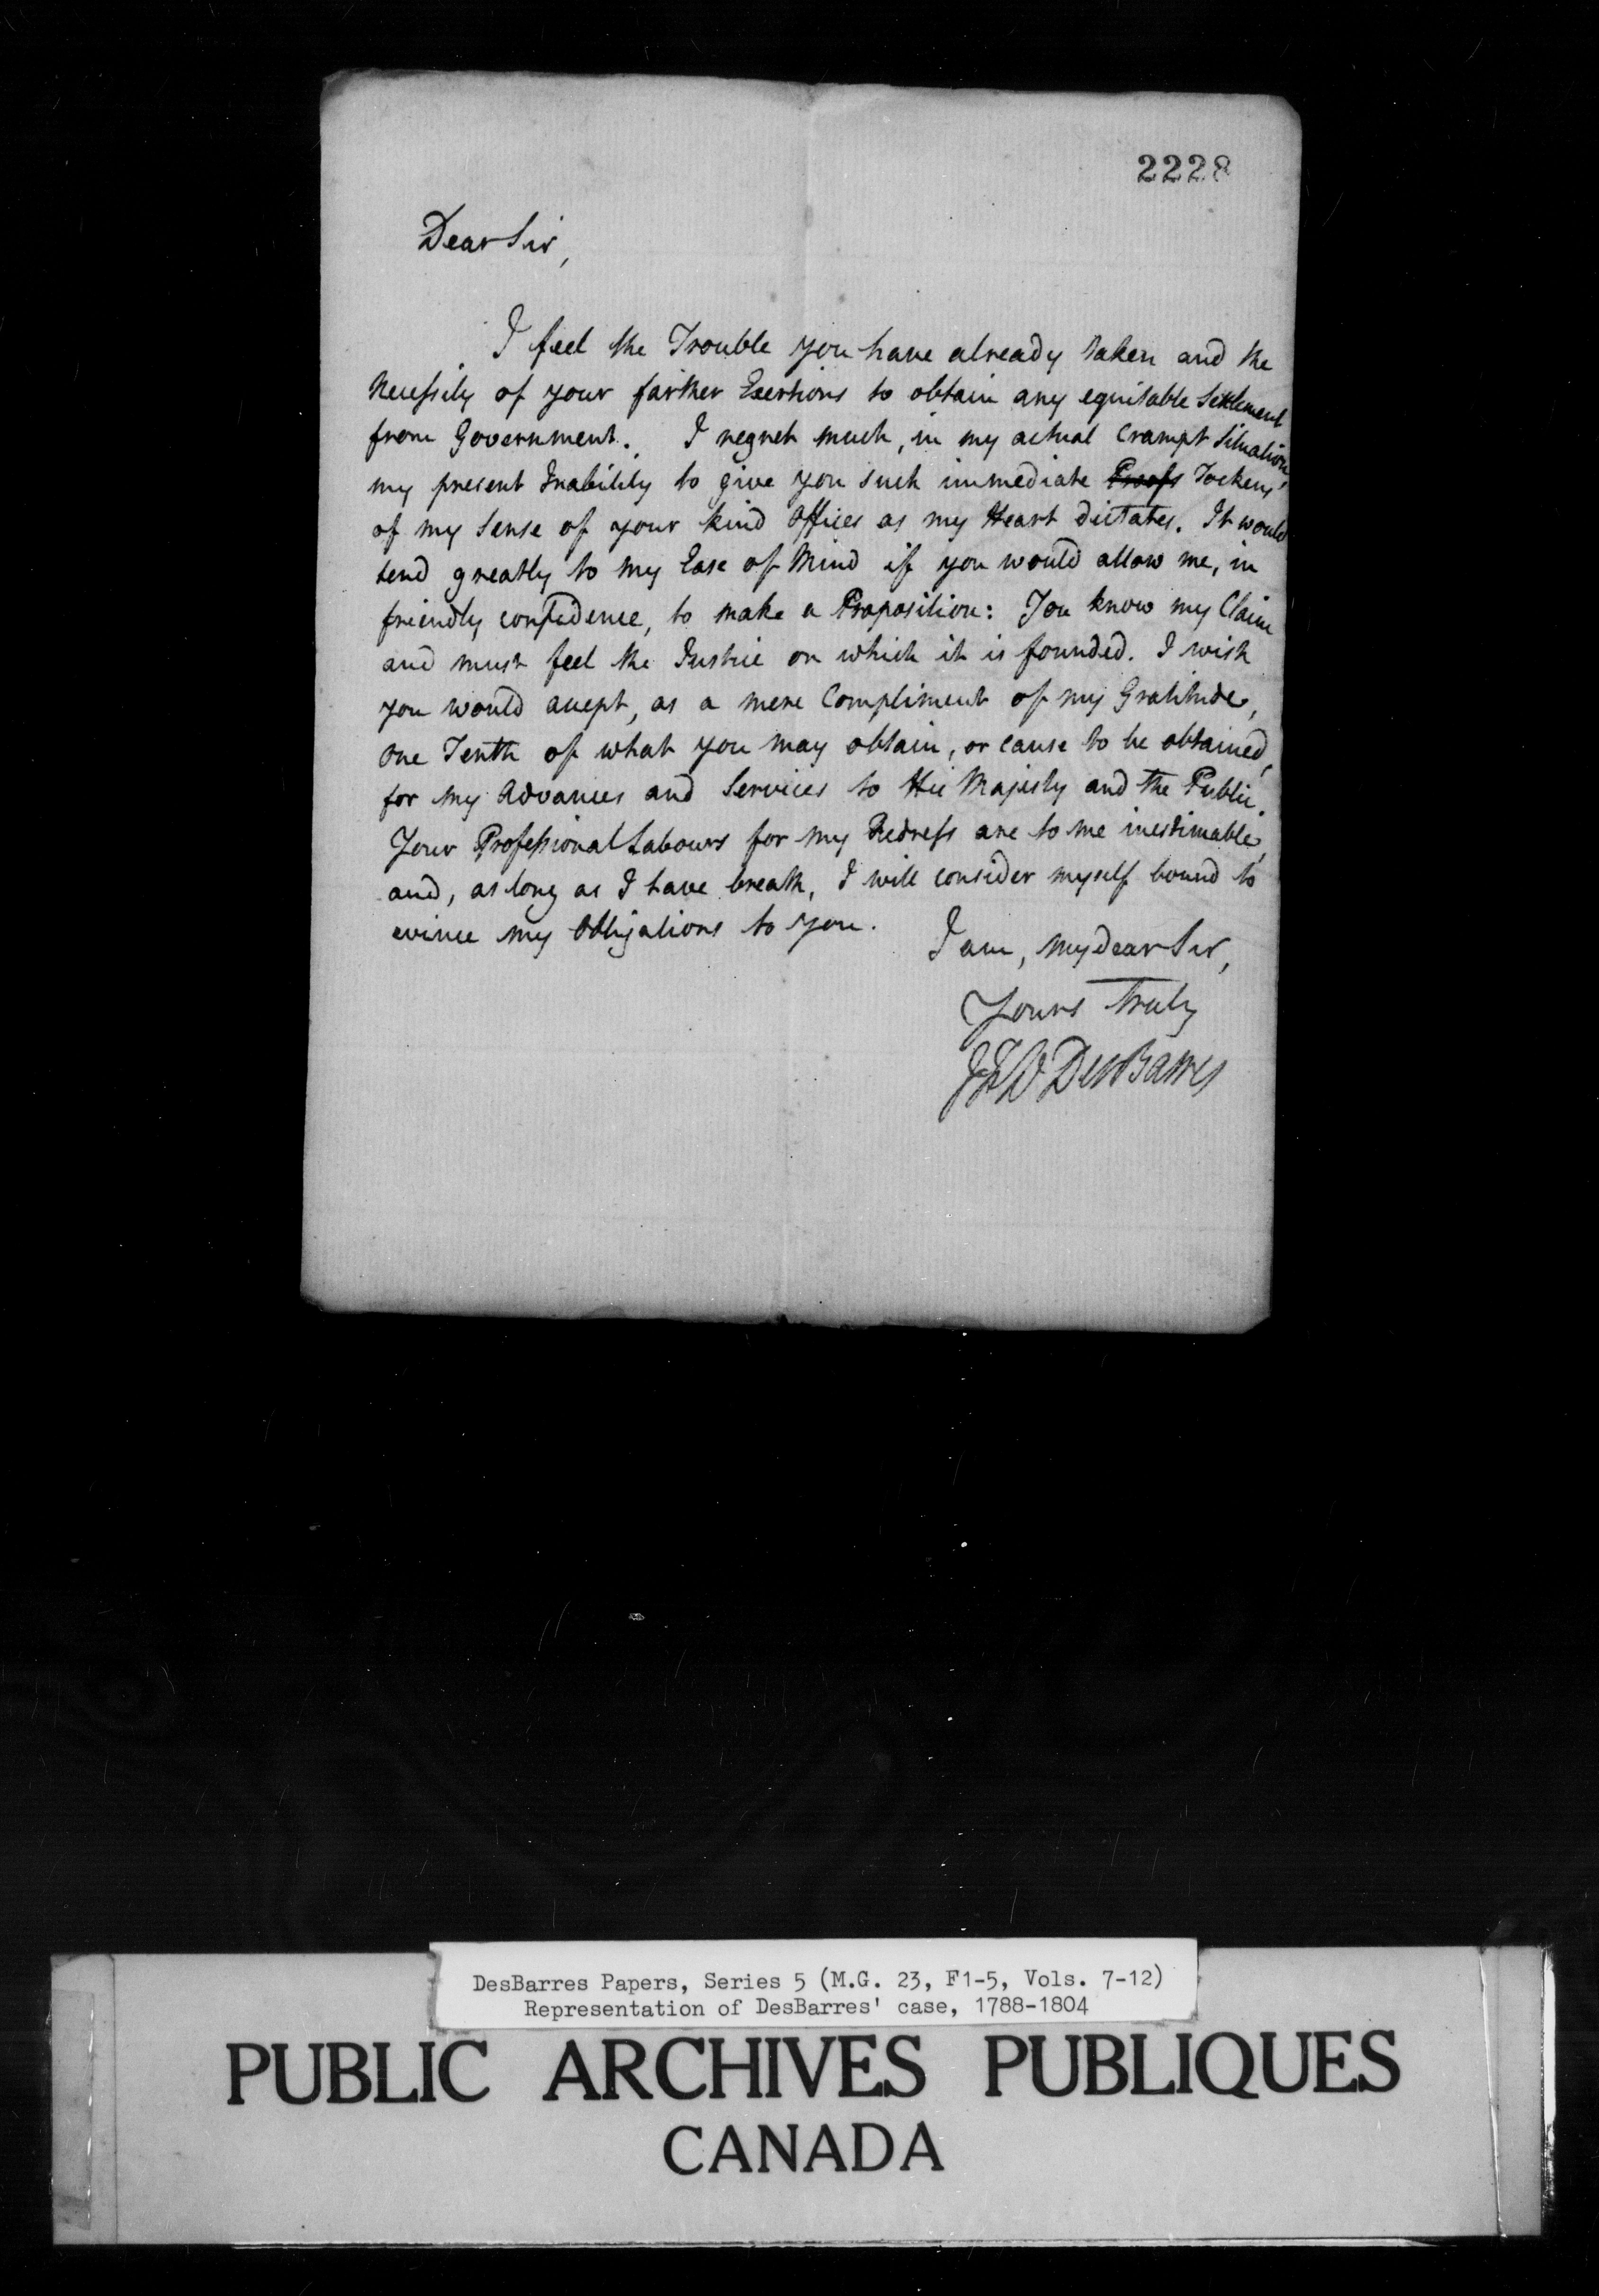 2228
Dear Sir,
I feel the Trouble you have already taken and the
Necessity of your farther Exertions to obtain any equitable Settlement
from Government. I regret much, in my actual Crampt Situation
my present Inability to give you such immediate Proofs Tockens,
of my Sense of your kind Offices as my Heart dictates. It would
tend greatly to my Ease of Mind if you would allow me, in
friendly confidence, to make a Proposition: You know my Claim
and must feel the Justice on which it is founded. I wish
you would accept, as a mere Compliment of my Gratitude,
one Tenth of what you may obtain, or cause to be obtained,
for my Advances and Services to His Majesty and the Public.
Your Professional Labours for my Redress are to me inestimable,
and, as long as I have breath, I will consider myself bound to
evince my Obligations to you.
I am, my dear Sir,
Yours Truly
JFW DesBarres
DesBarres Papers, Series 5 (M.G. 23, F1-5, Vols. 7-12)
Representation of DesBarres' case, 1788-1804
PUBLIC ARCHIVES PUBLIQUES
CANADA